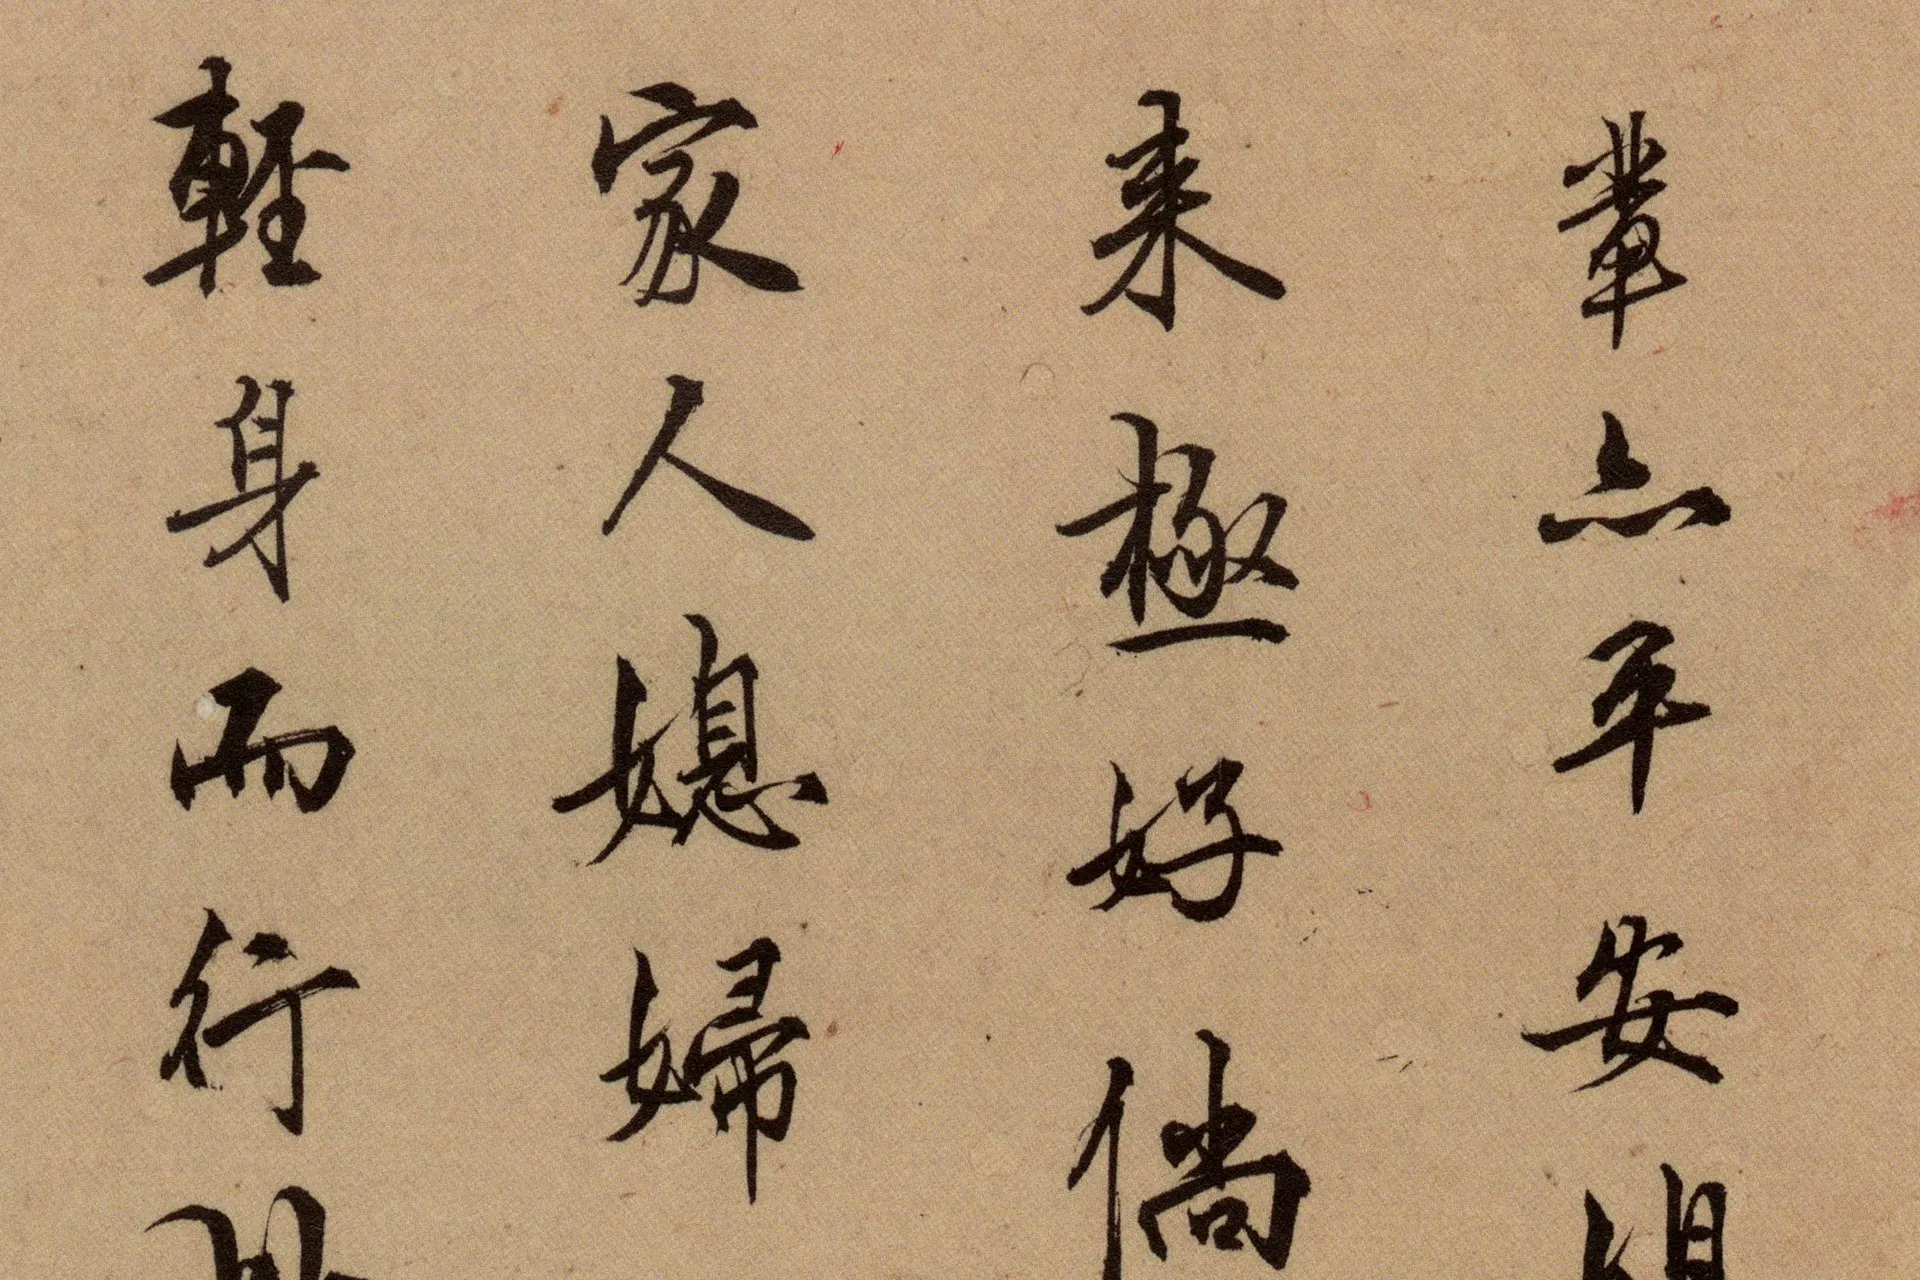 輩亦平安
来極好倘
家人媳婦
軽身而行